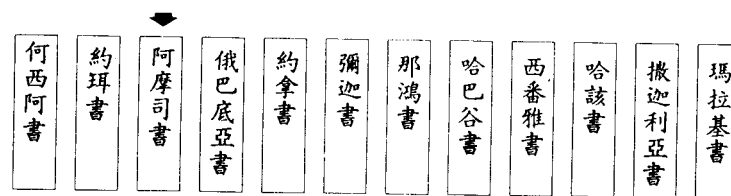 何西阿書
約珥書
阿摩司書
俄巴底亞書
約拿書
彌迦書
那鴻書
哈巴谷書
西番雅書
哈該書
撒迦利亞書
瑪拉基書